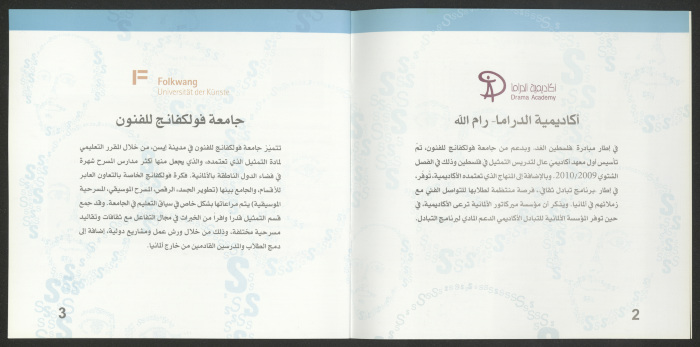 أكاديمية الدراما
Drama Academy
أكاديمية الدراما- رام الله
في إطار مبادرة فلسطين الغد، وبدعم من جامعة فولكفانج للفنون، تم
تأسيس أول معهد أكاديمي عال لتدريس التمثيل في فلسطين وذلك في الفصل
الشتوي 2010/2009. وبالإضافة إلى المنهاج الذي تعتمده الأكاديمية، توفر،
في إطار برنامج تبادل ثقافي، فرصة منتظمة لطلابها للتواصل الفني مع
زملائهم في ألمانيا. ويذكر أن مؤسسة ميركاتور الألمانية ترعى الأكاديمية، في
حين توفر المؤسسة الألمانية للتبادل الأكاديمي الدعم المادي لبرنامج التبادل.
2
Folkwang
Universität der Künste
جامعة فولكفانج للفنون
تتميز جامعة فولكفانج للفنون في مدينة إيسن، من خلال المقرر التعليمي
لمادة التمثيل الذي تعتمده، والذي يجعل منها أكثر مدارس المسرح شهرة
في فضاء الدول الناطقة بالألمانية. فكرة فولكفانج الخاصة بالتعاون العابر
للأقسام، والجامع بينها (تطوير الجسد، الرقص، المسرح الموسيقي، المسرحية
الموسيقية) يتم مراعاتها بشكل خاص في سياق التعليم في الجامعة. وقد جمع
قسم التمثيل قدرا وافرا من الخبرات في مجال التفاعل مع ثقافات وتقاليد
مسرحية مختلفة، وذلك من خلال ورش عمل ومشاريع دولية، إضافة إلى
دمج الطلاب والمدرسين القادمين من خارج ألمانيا.
3